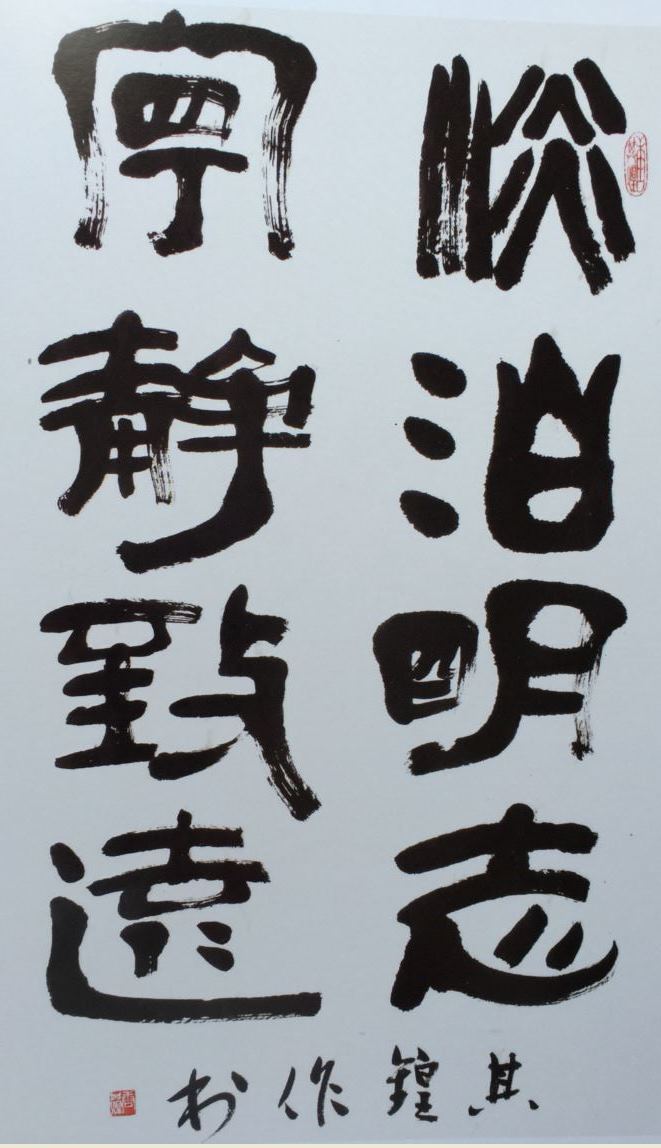 淡泊明志
寧靜致遠
其鍠作於